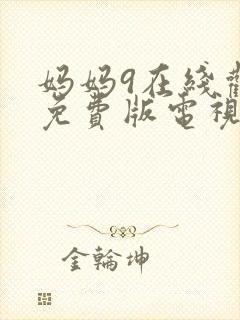 妈妈9在线
免費版電視
金輪坤